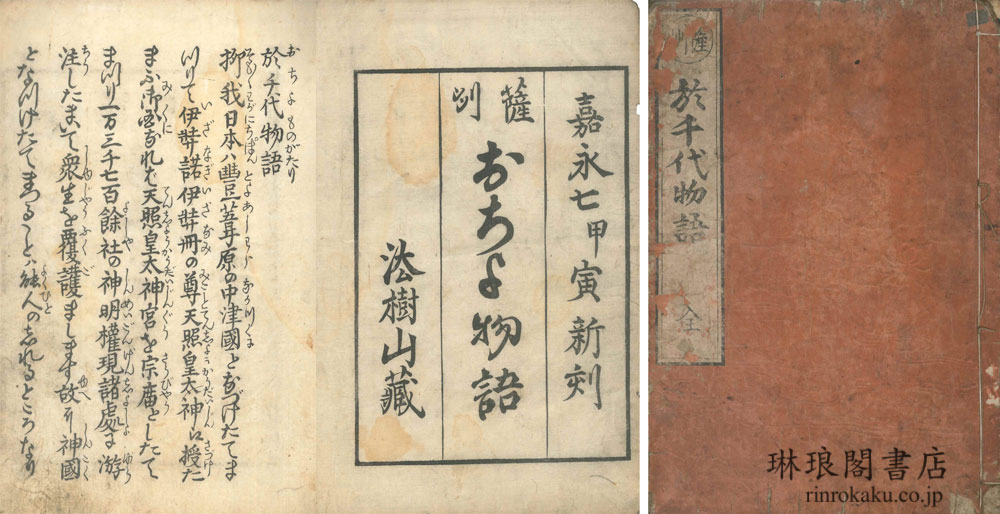 薩州 於千代物語 全
嘉永七甲寅新刻
薩州
おちよ物語
法樹山藏
於千代物語
おちよものがたり
抑我日本ハ豊葦原の中津國となづけたてま
つりて伊弉諾伊弉冊の尊天照皇太神に授た
まふ御国なれば天照皇太神宮を宗廟としたて
まつり一万三千七百餘社の神明權現諸處に游
注したまいて衆生を覆護まします故に神國
となづけたてまつること能人のしれるところなり
琳琅閣書店
rinrokaku.co.jp